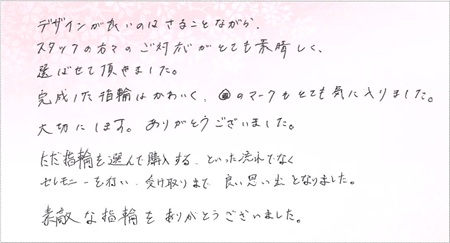 デザインが良いのはさることながら、
スタッフの方々のご対応がとても素晴しく、
選ばせて頂きました。
完成した指輪はかわいく、のマークもとても気に入りました。
大切にします。ありがとうございました。
ただ指輪を選んで購入する、といった流れでなく
セレモニーを行い、受け取りまで、良い思い出となりました。
素敵な指輪をありがとうございました。